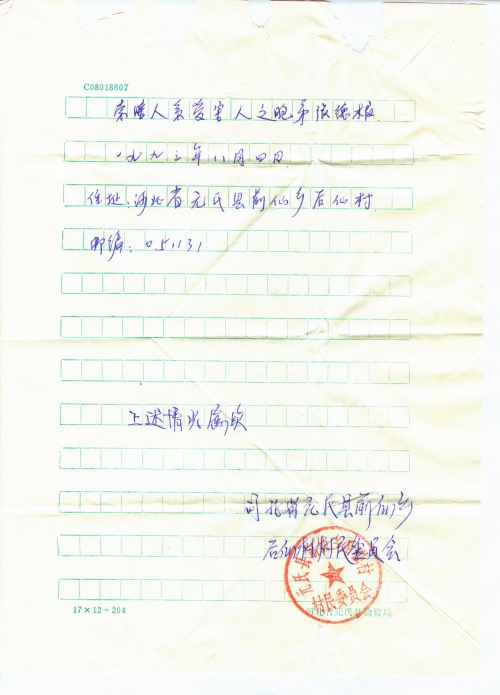 C08018807
索赔人系受害人之胞弟张德根.
一九九三年八月四日
住址:河北省元氏县前仙乡后仙村
邮编:051131
上述情况属实
河北省元氏县前仙乡
后仙村村民委员会
元氏县 村
村民委员会
17×12=204